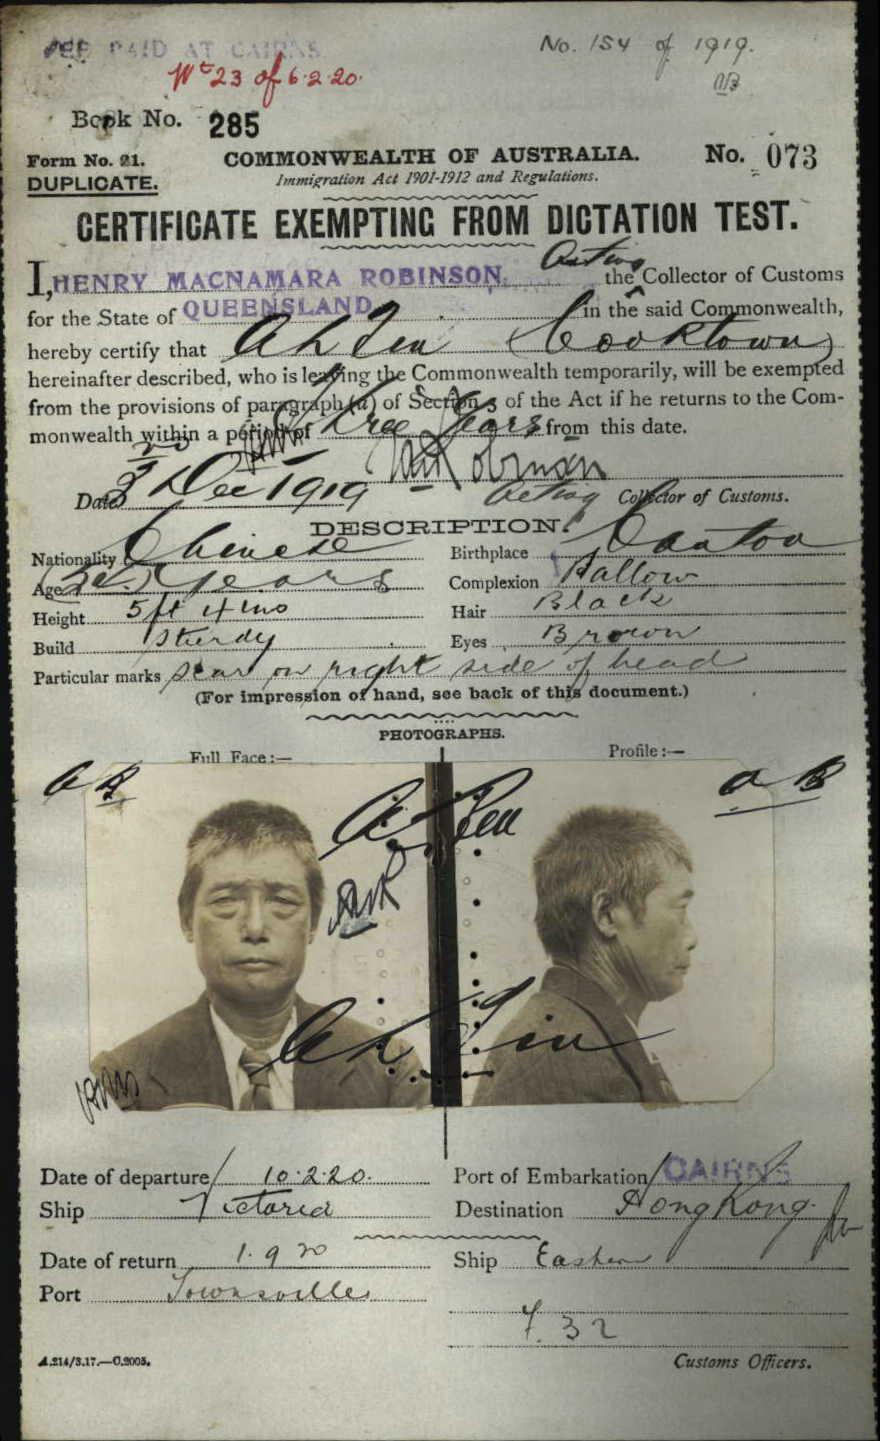 FEE PAID AT CAIRNS
No. 154 of 1919.
Wt 23 of 6.2.20.
Book No. 285
Form No. 21. COMMONWEALTH OF AUSTRALIA. No. 073
DUPLICATE. Immigration Act 1901-1912 and Regulations.
CERTIFICATE EXEMPTING FROM DICTATION TEST.
I, HENRY MACNAMARA ROBINSON Acting the Collector of Customs
for the State of QUEENSLAND in the said Commonwealth,
hereby certify that Ah (Cooktown)
hereinafter described, who is leaving the Commonwealth temporarily, will be exempted
from the provisions of paragraph (a) of Section 3 of the Act if he returns to the Com-
monwealth within a period of Three Years from this date.
Robinson
Date Dec 1919 Acting Collector of Customs.
DESCRIPTION.
Nationality Chinese Birthplace Canton
Age years Complexion Sallow
Height 5ft 4 ins Hair Black
Build Sturdy Eyes Brown
Particular marks scar on right side of head
(For impression of hand, see back of this document.)
PHOTOGRAPHS.
Full Face:— Profile:—
Ah
Ah
Date of departure 10.2.20. Port of Embarkation CAIRNS
Ship Victoria Destination Hong Kong.
Date of return 1.9.20 Ship Eastern
Port Townsville
F. 32
A.214/3.17.—C.2005. Customs Officers.